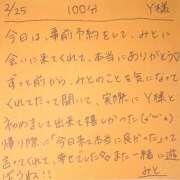 2/25 100分 Y様
今日は、事前予約をして、みとに
会いに来てくれて、本当にありがとう♡
ずっと前から、みとのことを気になって
くれてたって聞いて、実際に Y様と
初めまして出来て嬉しかった(๑′ᴗ‵๑)
帰り際に「今日来て本当に良かった」って
言ってくれて、幸せでした♡また一緒に遊
ぼうね!! みと